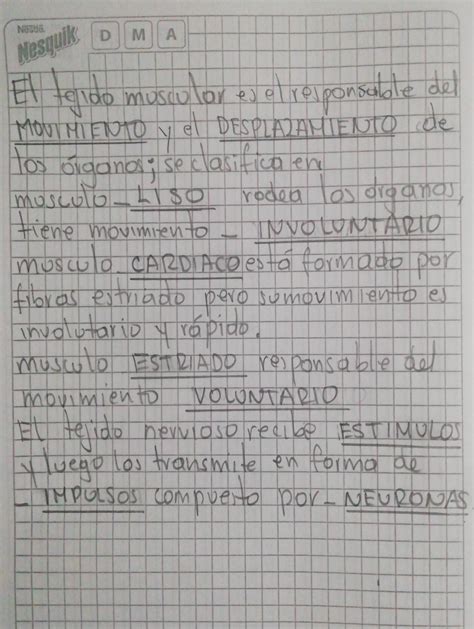 NESTLÉ
Nesquik D M A
El tejido muscular es el responsable del
MOVIMIENTO y el DESPLAZAMIENTO de
los órganos; se clasifica en
musculo - LISO rodea los órganos,
tiene movimiento - INVOLUNTARIO
musculo CARDIACO está formado por
fibras estriado pero su movimiento es
involutario y rápido.
musculo ESTRIADO responsable del
movimiento VOLUNTARIO
El tejido nervioso recibe ESTIMULOS
y luego los transmite en forma de
- IMPULSOS compuerto por - NEURONAS